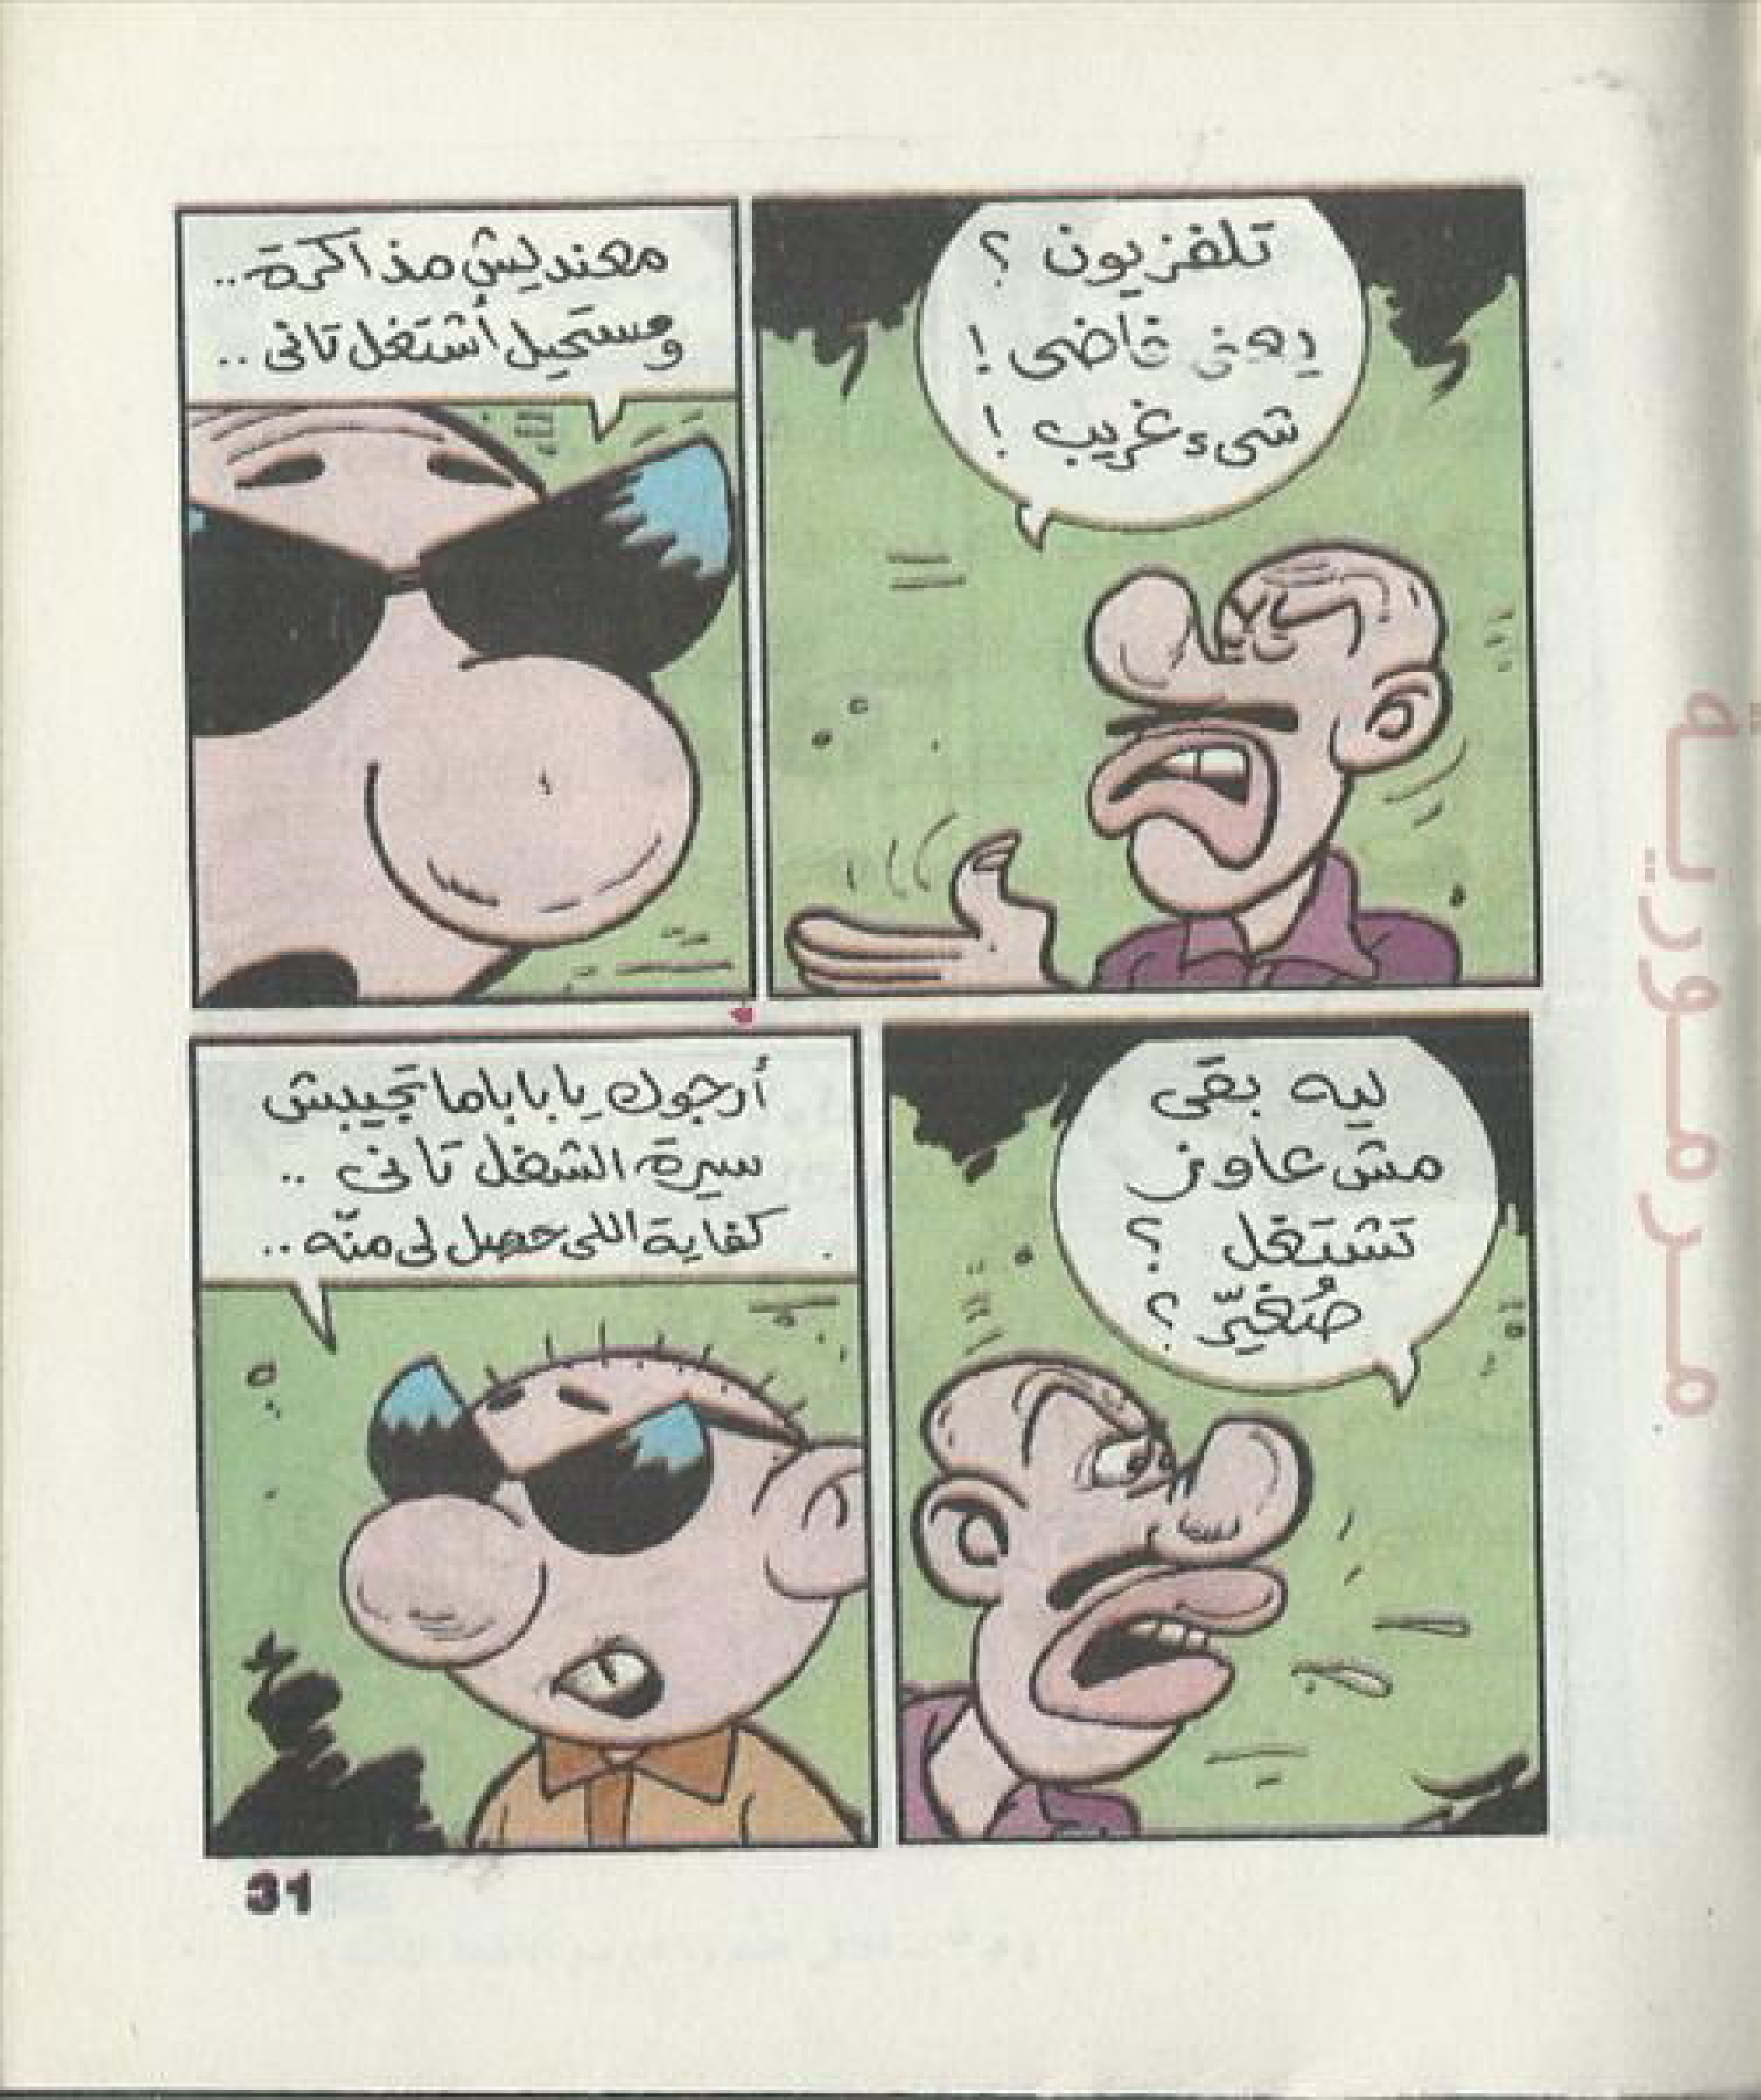 تلفزيون ؟
يعنى فاضى !
شىء غريب !
معنديش مذاكرة ..
ومستحيل أشتغل تانى ..
ليه بقى
مش عاوز
تشتغل ؟
صُغيّر ؟
أرجوك يا بابا ما تجيبش
سيرة الشغل تانى ..
كفاية اللى حصل لى منّه ..
31